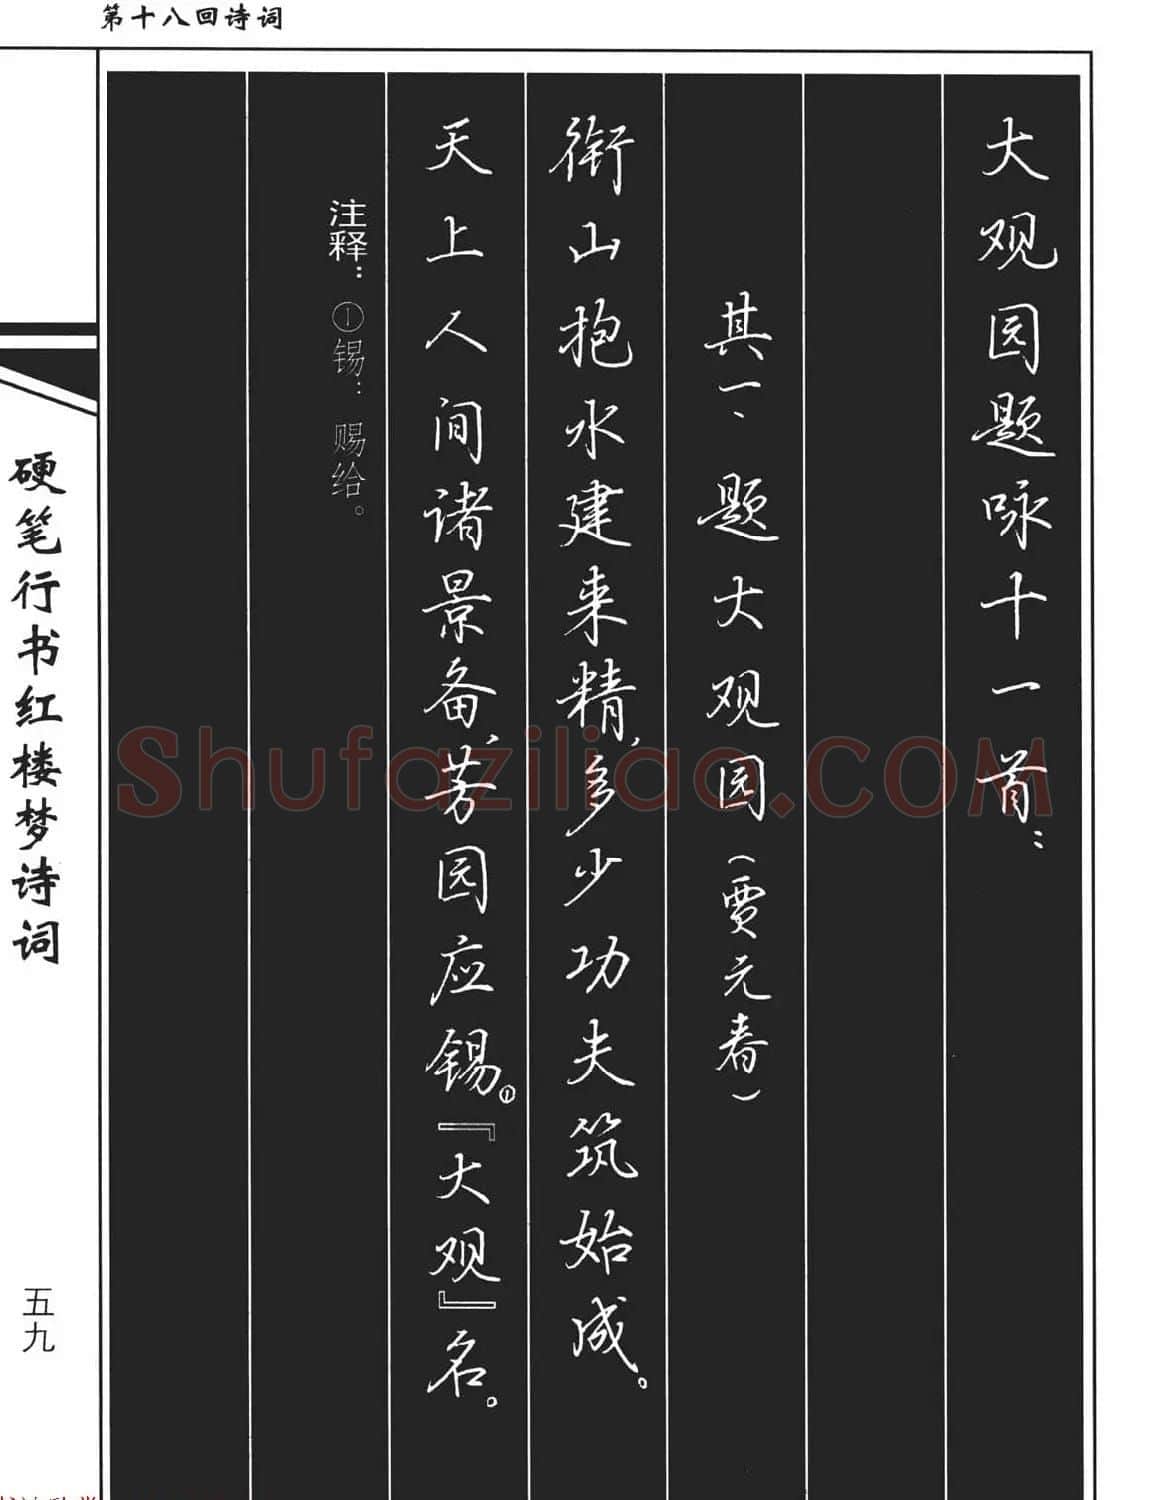 第十八回诗词
大观园题咏十一首：
其一、题大观园（贾元春）
衔山抱水建来精，多少功夫筑始成。
天上人间诸景备，芳园应锡①。『大观』名。
注释：①锡：赐给。
硬笔行书红楼梦诗词
五九
Shufaziliao.COM